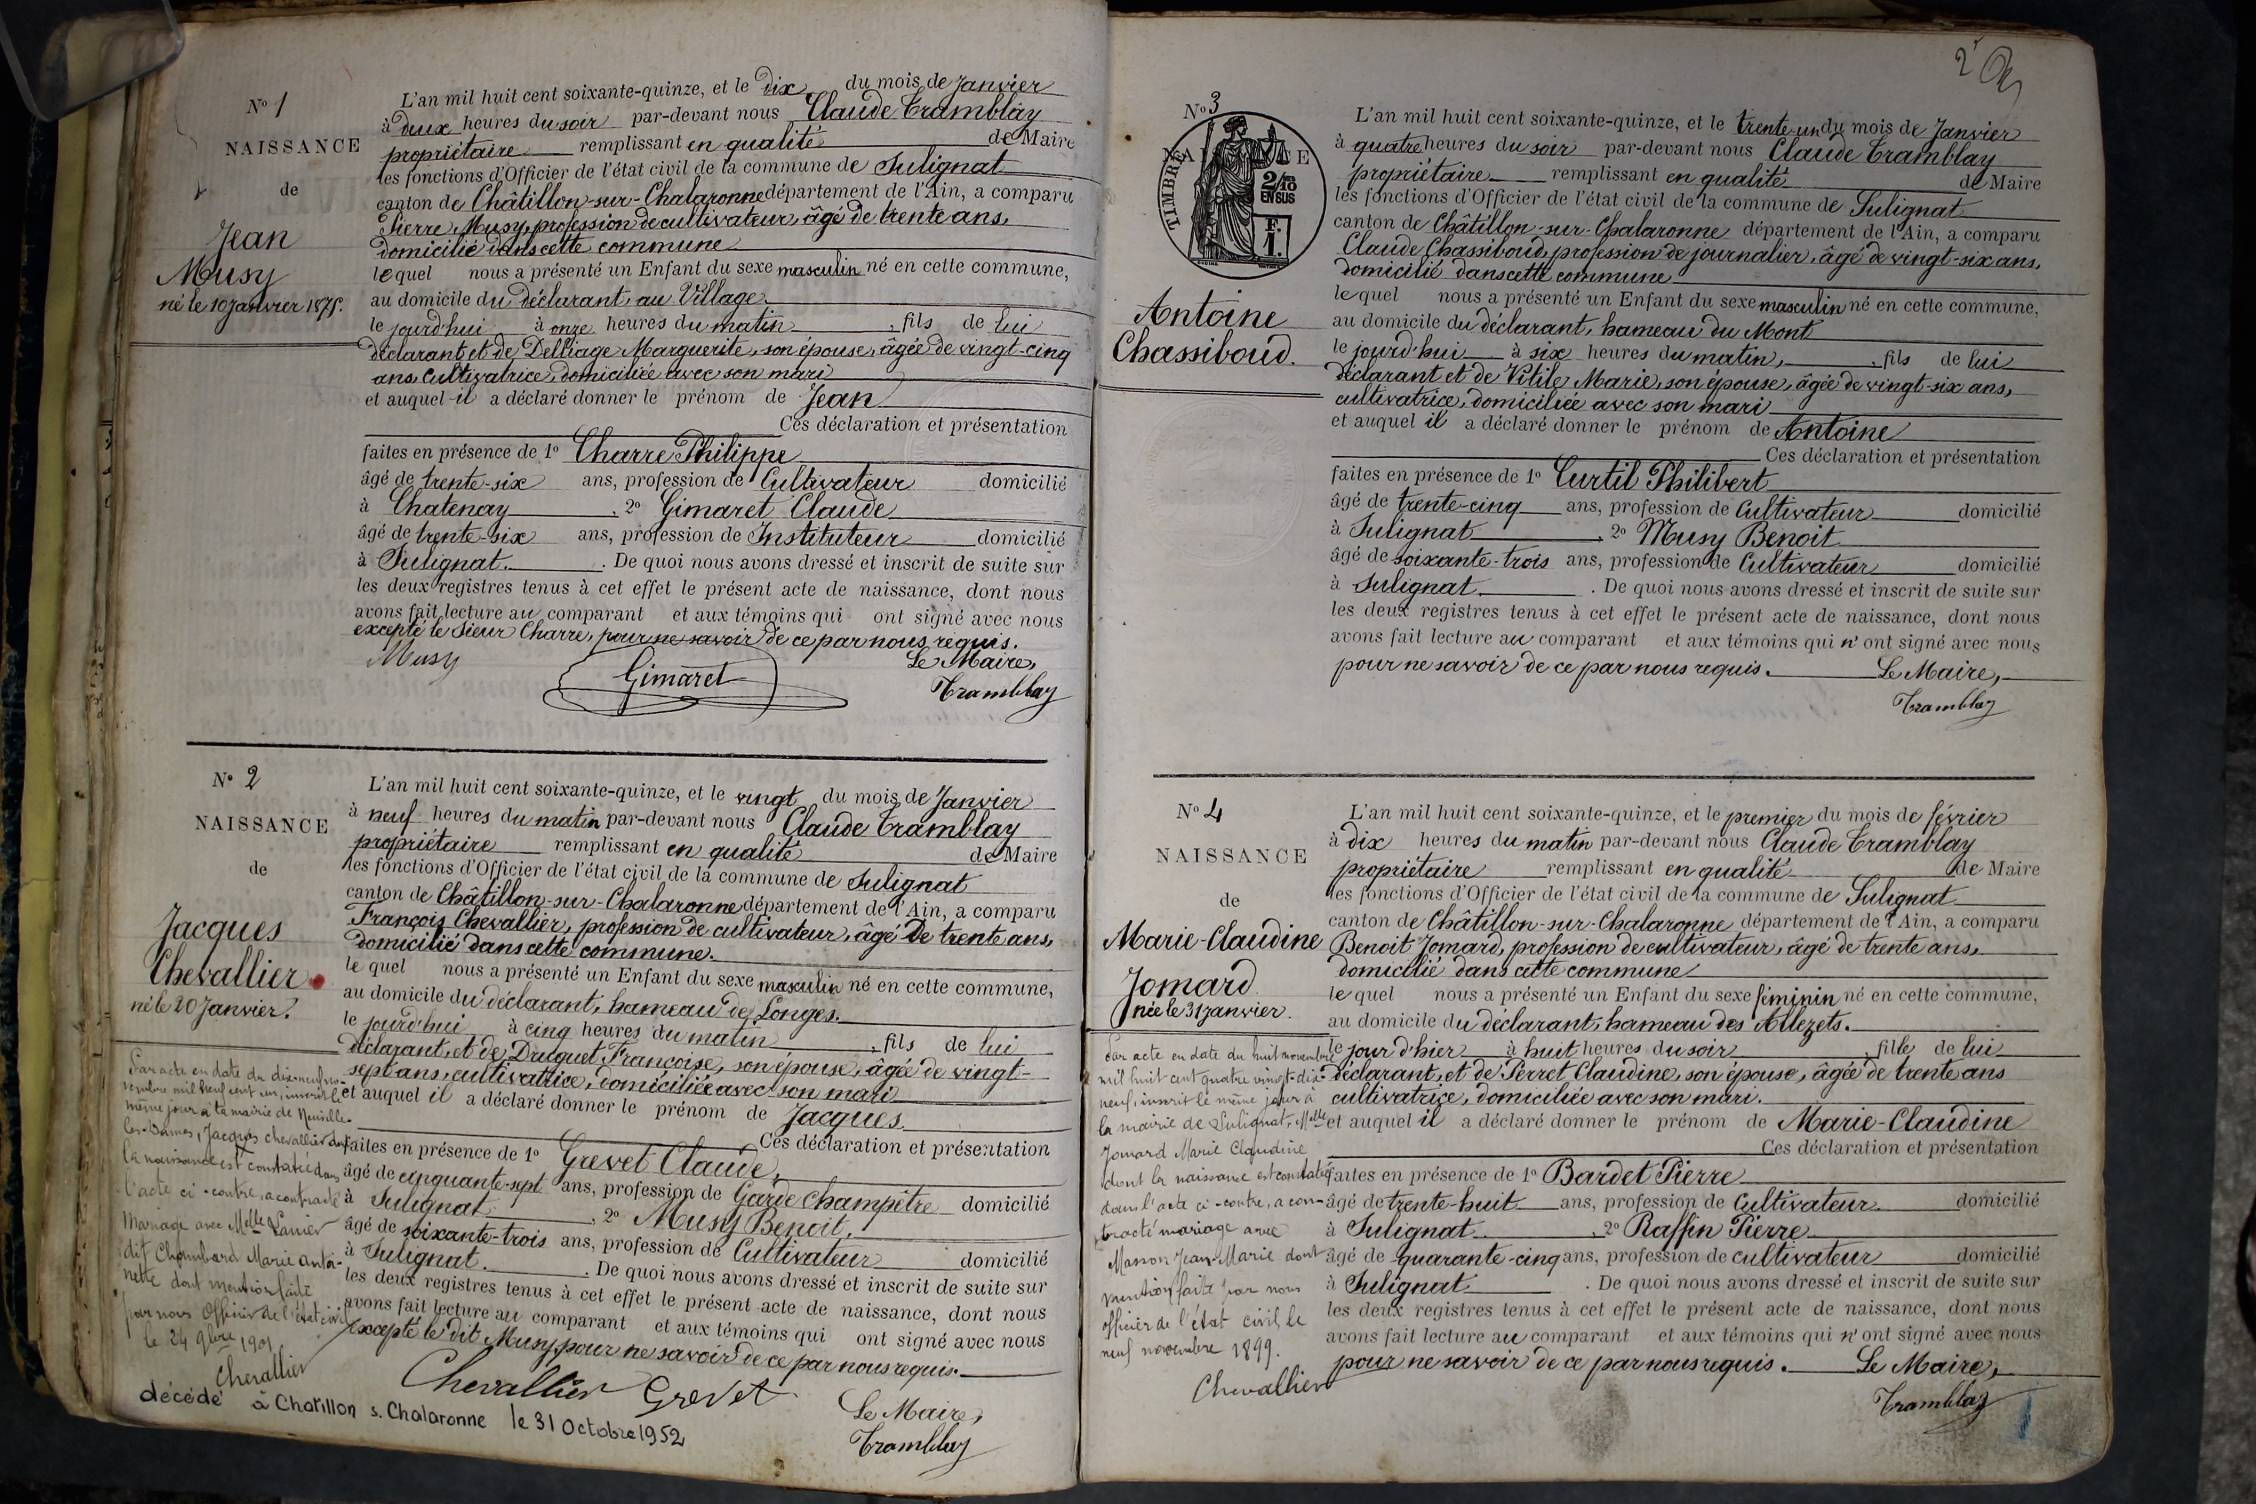 N° 1
NAISSANCE
de
Jean
Musy
né le 10 Janvier 1875.
L'an mil huit cent soixante-quinze, et le dix du mois de Janvier
à deux heures du soir par-devant nous Claude Tramblay
propriétaire remplissant en qualité de Maire
les fonctions d'Officier de l'état civil de la commune de Sulignat
canton de Châtillon-sur-Chalaronne département de l'Ain, a comparu
Pierre Musy, profession de cultivateur, âgé de trente ans,
domicilié dans cette commune
lequel nous a présenté un Enfant du sexe masculin né en cette commune,
au domicile du déclarant, au Village.
le jourd'hui à onze heures du matin, fils de lui
déclarant et de Delliage Marguerite, son épouse, âgée de vingt-cinq
ans, cultivatrice, domiciliée avec son mari
et auquel il a déclaré donner le prénom de Jean
Ces déclaration et présentation
faites en présence de 1° Charre Philippe
âgé de trente-six ans, profession de Cultivateur domicilié
à Chatenay, 2° Gimaret Claude
âgé de trente-six ans, profession de Instituteur domicilié
à Sulignat. De quoi nous avons dressé et inscrit de suite sur
les deux registres tenus à cet effet le présent acte de naissance, dont nous
avons fait lecture au comparant et aux témoins qui ont signé avec nous
excepté le Sieur Charre, pour ne savoir de ce par nous requis.
Musy Gimaret Le Maire,
Tramblay
N° 2
NAISSANCE
de
Jacques
Chevallier
né le 20 Janvier.
L'an mil huit cent soixante-quinze, et le vingt du mois de Janvier
à neuf heures du matin par-devant nous Claude Tramblay
propriétaire remplissant en qualité de Maire
les fonctions d'Officier de l'état civil de la commune de Sulignat
canton de Châtillon-sur-Chalaronne département de l'Ain, a comparu
François Chevallier, profession de cultivateur, âgé de trente ans,
domicilié dans cette commune.
le quel nous a présenté un Enfant du sexe masculin né en cette commune,
au domicile du déclarant, hameau de Longes.
le jourd'hui à cinq heures du matin, fils de lui
déclarant, et de Druguet Françoise, son épouse, âgée de vingt-
sept ans, cultivatrice, domiciliée avec son mari
et auquel il a déclaré donner le prénom de Jacques.
Ces déclaration et présentation
faites en présence de 1° Grevet Claude,
âgé de cinquante-sept ans, profession de Garde Champêtre domicilié
à Sulignat, 2° Musy Benoit,
âgé de soixante-trois ans, profession de Cultivateur domicilié
à Sulignat. De quoi nous avons dressé et inscrit de suite sur
les deux registres tenus à cet effet le présent acte de naissance, dont nous
avons fait lecture au comparant et aux témoins qui ont signé avec nous
excepté le dit Musy, pour ne savoir de ce par nous requis.
Chevallier Grevet
Le Maire,
Tramblay
Par acte en date du dix-neuf no-
vembre mil neuf cent un, inscrit le
même jour à la mairie de Neuville-
les-Dames, Jacques Chevallier dont
la naissance est constatée dans
l'acte ci-contre, a contracté
Mariage avec Melle Lanier
dit Chambard Marie Antoi-
nette dont mention faite
par nous Officier de l'état civil
le 24 9bre 1901
Chevallier
décédé à Chatillon s. Chalaronne le 31 Octobre 1952
2
N° 3
NAISSANCE
TIMBRE
2/10
EN SUS
F.
1.
Antoine
Chassiboud.
L'an mil huit cent soixante-quinze, et le trente-un du mois de Janvier
à quatre heures du soir par-devant nous Claude Tramblay
propriétaire remplissant en qualité de Maire
les fonctions d'Officier de l'état civil de la commune de Sulignat
canton de Châtillon-sur-Chalaronne département de l'Ain, a comparu
Claude Chassiboud, profession de journalier, âgé de vingt-six ans,
domicilié dans cette commune
le quel nous a présenté un Enfant du sexe masculin né en cette commune,
au domicile du déclarant, hameau du Mont
le jourd'hui à six heures du matin, fils de lui
déclarant et de Vitile Marie, son épouse, âgée de vingt-six ans,
cultivatrice, domiciliée avec son mari
et auquel il a déclaré donner le prénom de Antoine
Ces déclaration et présentation
faites en présence de 1° Curtil Philibert
âgé de trente-cinq ans, profession de Cultivateur domicilié
à Sulignat, 2° Musy Benoit
âgé de soixante-trois ans, profession de Cultivateur domicilié
à Sulignat. De quoi nous avons dressé et inscrit de suite sur
les deux registres tenus à cet effet le présent acte de naissance, dont nous
avons fait lecture au comparant et aux témoins qui n'ont signé avec nous
pour ne savoir de ce par nous requis. Le Maire,
Tramblay
N° 4
NAISSANCE
de
Marie-Claudine
Jomard
née le 31 janvier.
L'an mil huit cent soixante-quinze, et le premier du mois de février
à dix heures du matin par-devant nous Claude Tramblay
propriétaire remplissant en qualité de Maire
les fonctions d'Officier de l'état civil de la commune de Sulignat
canton de Châtillon-sur-Chalaronne département de l'Ain, a comparu
Benoit Jomard, profession de cultivateur, âgé de trente ans,
domicilié dans cette commune
le quel nous a présenté un Enfant du sexe féminin né en cette commune,
au domicile du déclarant, hameau des Allezets.
le jour d'hier à huit heures du soir, fille de lui
déclarant, et de Perret Claudine, son épouse, âgée de trente ans
cultivatrice, domiciliée avec son mari.
et auquel il a déclaré donner le prénom de Marie-Claudine
Ces déclaration et présentation
faites en présence de 1° Bardet Pierre
âgé de trente-huit ans, profession de Cultivateur domicilié
à Sulignat, 2° Raffin Pierre
âgé de quarante-cinq ans, profession de cultivateur domicilié
à Sulignat. De quoi nous avons dressé et inscrit de suite sur
les deux registres tenus à cet effet le présent acte de naissance, dont nous
avons fait lecture au comparant et aux témoins qui n'ont signé avec nous
pour ne savoir de ce par nous requis. Le Maire,
Tramblay
Par acte en date du huit novembre
mil huit cent quatre vingt-dix-
neuf, inscrit le même jour à
la mairie de Sulignat, Melle
Jomard Marie Claudine
dont la naissance est constatée
dans l'acte ci-contre, a con-
tracté mariage avec
Masson Jean-Marie dont
mention faite par nous
officier de l'état civil, le
neuf novembre 1899.
Chevallier